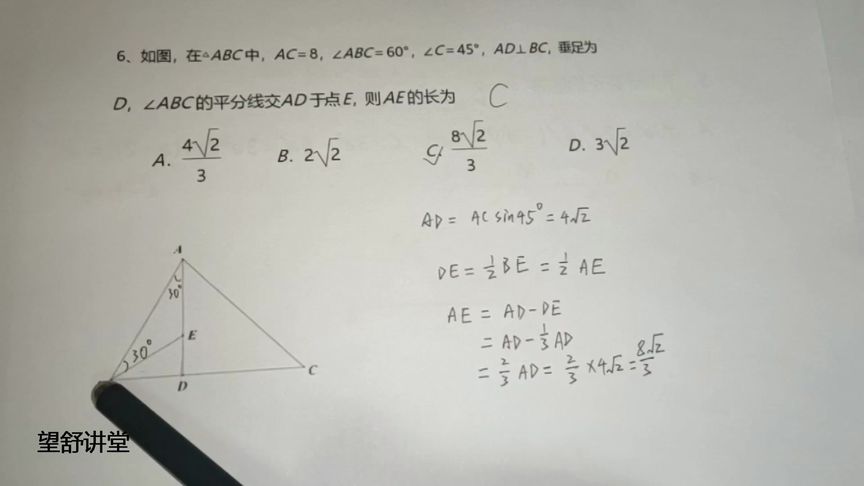 6、如图，在△ABC中，AC=8，∠ABC=60°，∠C=45°，AD⊥BC，垂足为
D，∠ABC的平分线交AD于点E，则AE的长为 C
A. 4√2/3 B. 2√2 C. 8√2/3 D. 3√2
AD = AC sin45° = 4√2
DE = 1/2 BE = 1/2 AE
AE = AD-DE
= AD-1/3 AD
= 2/3 AD = 2/3 ×4√2 = 8√2/3
A
30°
E
30°
C
D
望舒讲堂